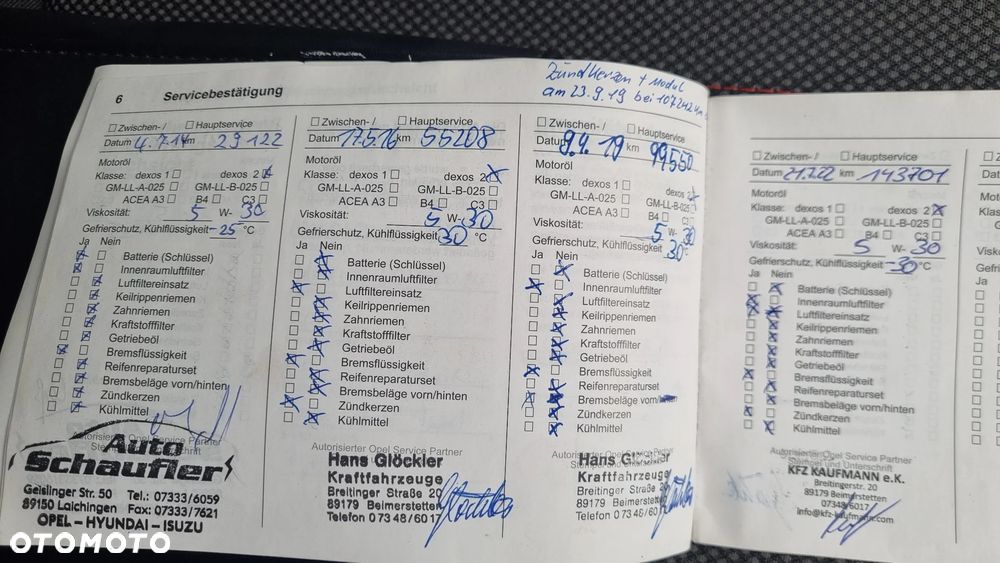 Zündkerzen + Modul
am 23.9.19 bei 107242 km
6 Servicebestätigung
Zwischen-/ Hauptservice
Datum 4.7.14 km 29122
Motoröl
Klasse: dexos 1 dexos 2
GM-LL-A-025 GM-LL-B-025
ACEA A3 B4 C3
Viskosität: 5 W- 30
Gefrierschutz, Kühlflüssigkeit -25 °C
Ja Nein
Batterie (Schlüssel)
Innenraumluftfilter
Luftfiltereinsatz
Keilrippenriemen
Zahnriemen
Kraftstofffilter
Getriebeöl
Bremsflüssigkeit
Reifenreparaturset
Bremsbeläge vorn/hinten
Zündkerzen
Kühlmittel
Autorisierter Opel Service Partner
Auto
Schaufler
Geislinger Str. 50 Tel.: 07333/6059
89150 Laichingen Fax: 07333/7621
OPEL-HYUNDAI-ISUZU
Zwischen-/ Hauptservice
Datum 17.5.16 km 55208
Motoröl
Klasse: dexos 1 dexos 2
GM-LL-A-025 GM-LL-B-025
ACEA A3 B4 C3
Viskosität: 5 W-30
Gefrierschutz, Kühlflüssigkeit 30 °C
Ja Nein
Batterie (Schlüssel)
Innenraumluftfilter
Luftfiltereinsatz
Keilrippenriemen
Zahnriemen
Kraftstofffilter
Getriebeöl
Bremsflüssigkeit
Reifenreparaturset
Bremsbeläge vorn/hinten
Zündkerzen
Kühlmittel
Autorisierter Opel Service Partner
Hans Glöckler
Kraftfahrzeuge
Breitinger Straße 20
89179 Beimerstetten
Telefon 07348/6017
Zwischen-/ Hauptservice
Datum 9.9.19 km 99550
Motoröl
Klasse: dexos 1 dexos 2
GM-LL-A-025 GM-LL-B-025
ACEA A3 B4 C3
Viskosität: 5 W-30
Gefrierschutz, Kühlflüssigkeit 30 °C
Ja Nein
Batterie (Schlüssel)
Innenraumluftfilter
Luftfiltereinsatz
Keilrippenriemen
Zahnriemen
Kraftstofffilter
Getriebeöl
Bremsflüssigkeit
Reifenreparaturset
Bremsbeläge
Zündkerzen
Kühlmittel
Autorisierter Opel Service Partner
Hans
Kraftfahrzeuge
Breitinger Straße 20
89179 Beimerstetten
Telefon 07348/
Zwischen-/ Hauptservice
Datum 21.7.22 km 143701
Motoröl
Klasse: dexos 1 dexos 2
GM-LL-A-025 GM-LL-B-025
ACEA A3 B4 C3
Viskosität: 5 W-30
Gefrierschutz, Kühlflüssigkeit -30 °C
Ja Nein
Batterie (Schlüssel)
Innenraumluftfilter
Luftfiltereinsatz
Keilrippenriemen
Zahnriemen
Kraftstofffilter
Getriebeöl
Bremsflüssigkeit
Reifenreparaturset
Bremsbeläge vorn/hinten
Zündkerzen
Kühlmittel
Autorisierter Opel Service Partner
Stempel und Unterschrift
KFZ KAUFMANN e.K.
Breitingerstr. 20
89179 Beimerstetten
07348/6017
info@kfz-kaufmann.com
Ja
OTOMOTO